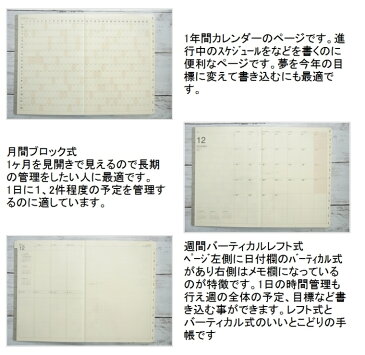 1年間カレンダーのページです。進
行中のｽｹｼﾞｭｰﾙをなどを書くのに
便利なページです。夢を今年の目
標に変えて書き込むにも最適で
す。
月間ブロック式
1ヶ月を見開きで見えるので長期
の管理をしたい人に最適です。
1日に1、2件程度の予定を管理す
るのに適しています。
12
週間バーティカルレフト式
ﾍﾟｰｼﾞ左側に日付欄のﾊﾞｰﾃｨｶﾙ式
があり右側はメモ欄になっている
のが特徴です。1日の時間管理も
行え週の全体の予定、目標など書
き込む事ができます。レフト式と
バーティカル式のいいとこどりの手
帳です
12